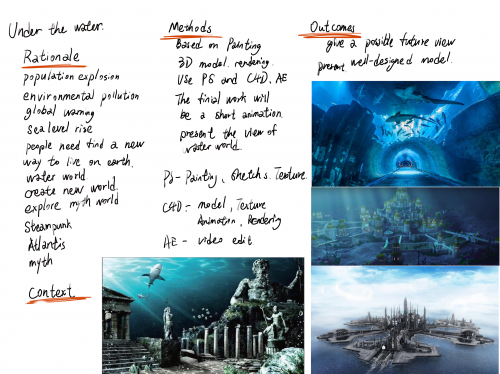 Under the water.
Rationale
population explosion
environmental pollution
global warning
sea level rise
people need find a new
way to live on earth.
water world
create new world.
explore myth world
Steampunk
Atlantis
myth
Context
Methods
Based on Painting
3D model. rendering.
Use PS and C4D, AE
The finial work will
be a short animation.
present the view of
water world.
PS - Painting, Sketchs. Texture.
C4D - model, Texture
Animation, Rendering
AE - video edit
Outcomes
give a possible future view
present well-designed model.